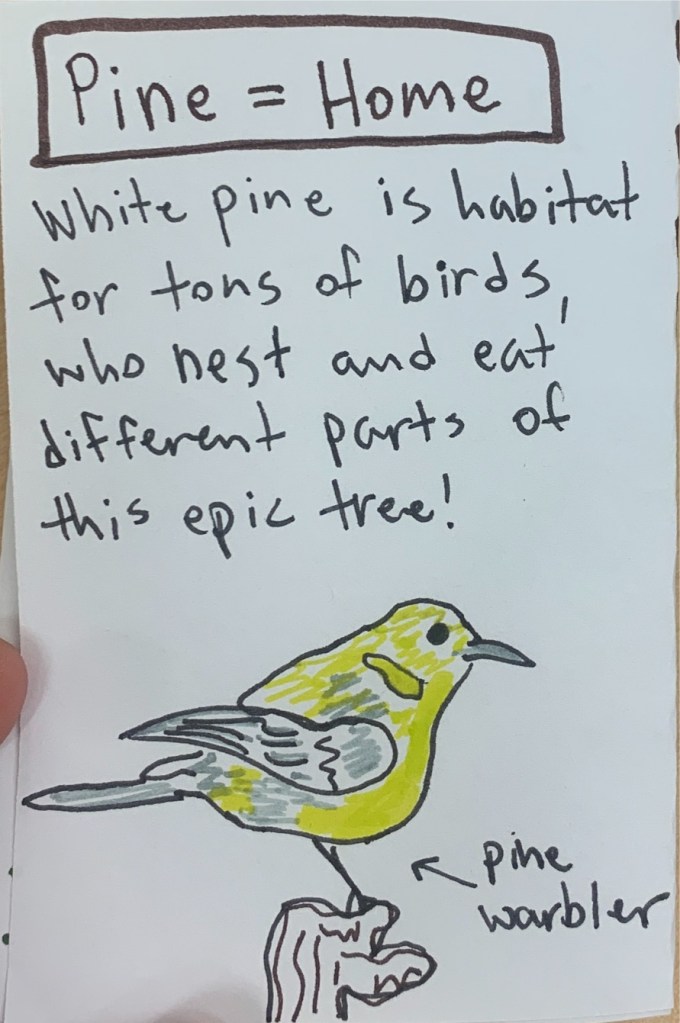 Pine = Home
White pine is habitat
for tons of birds,
who nest and eat
different parts of
this epic tree!
pine
warbler